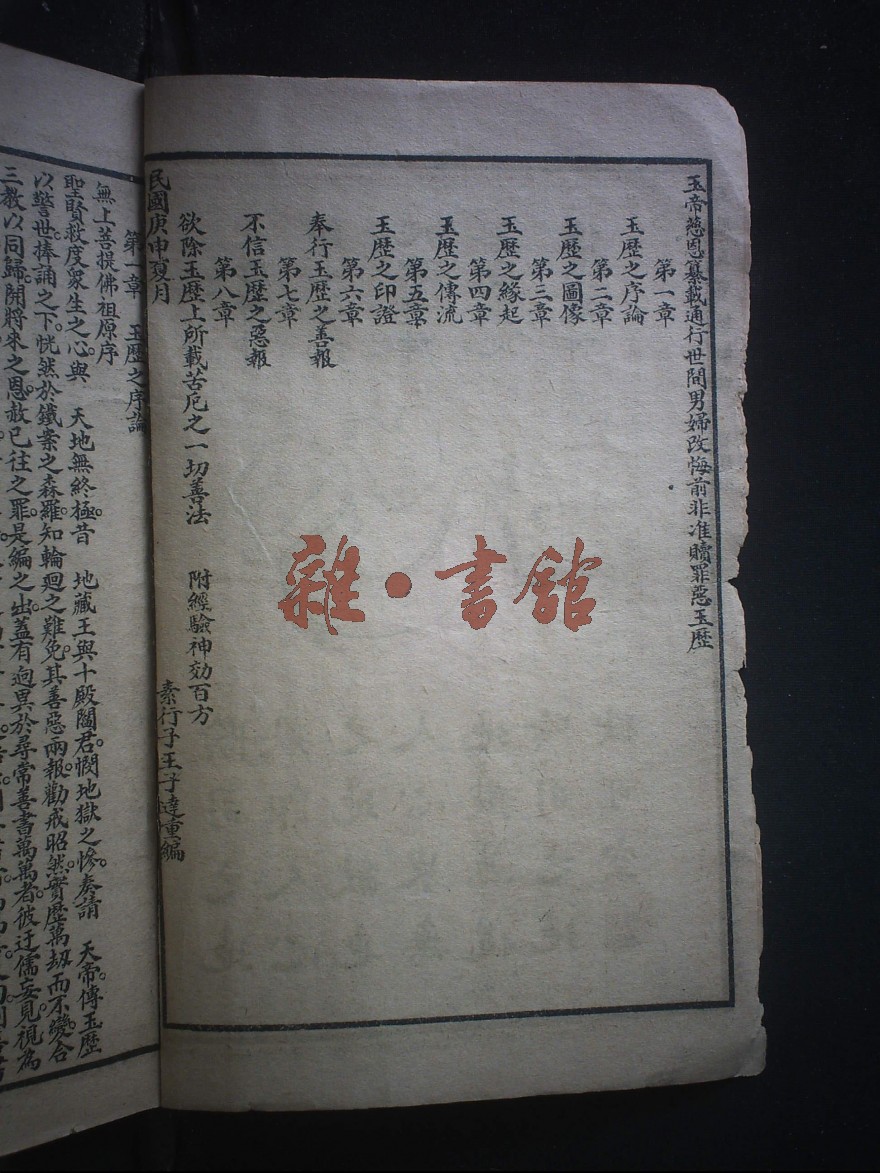 玉帝慈恩纂載通行世間男婦改悔前非准贖罪惡玉歷
第一章
玉歷之序論
第二章
玉歷之圖像
第三章
玉歷之緣起
第四章
玉歷之傳流
第五章
玉歷之印證
第六章
奉行玉歷之善報
第七章
不信玉歷之惡報
第八章
欲除玉歷上所載苦厄之一切善法 附經驗神効百方
民國庚申夏月 素行子王子達重編
第一章 玉歷之序論
無上菩提佛祖原序
聖賢救度衆生之心與 天地無終極昔 地藏王與十殿閻君憫地獄之慘奏請 天帝傳玉歷
以警世捧誦之下恍然於鐵案之森羅知輪迴之難免其善惡兩報勸戒昭然實歷萬刼而不變合
三教以同歸開將來之恩赦已往之罪是編之出蓋有逈異於尋常善書萬萬者彼迂儒妄見視為
雜·書舘